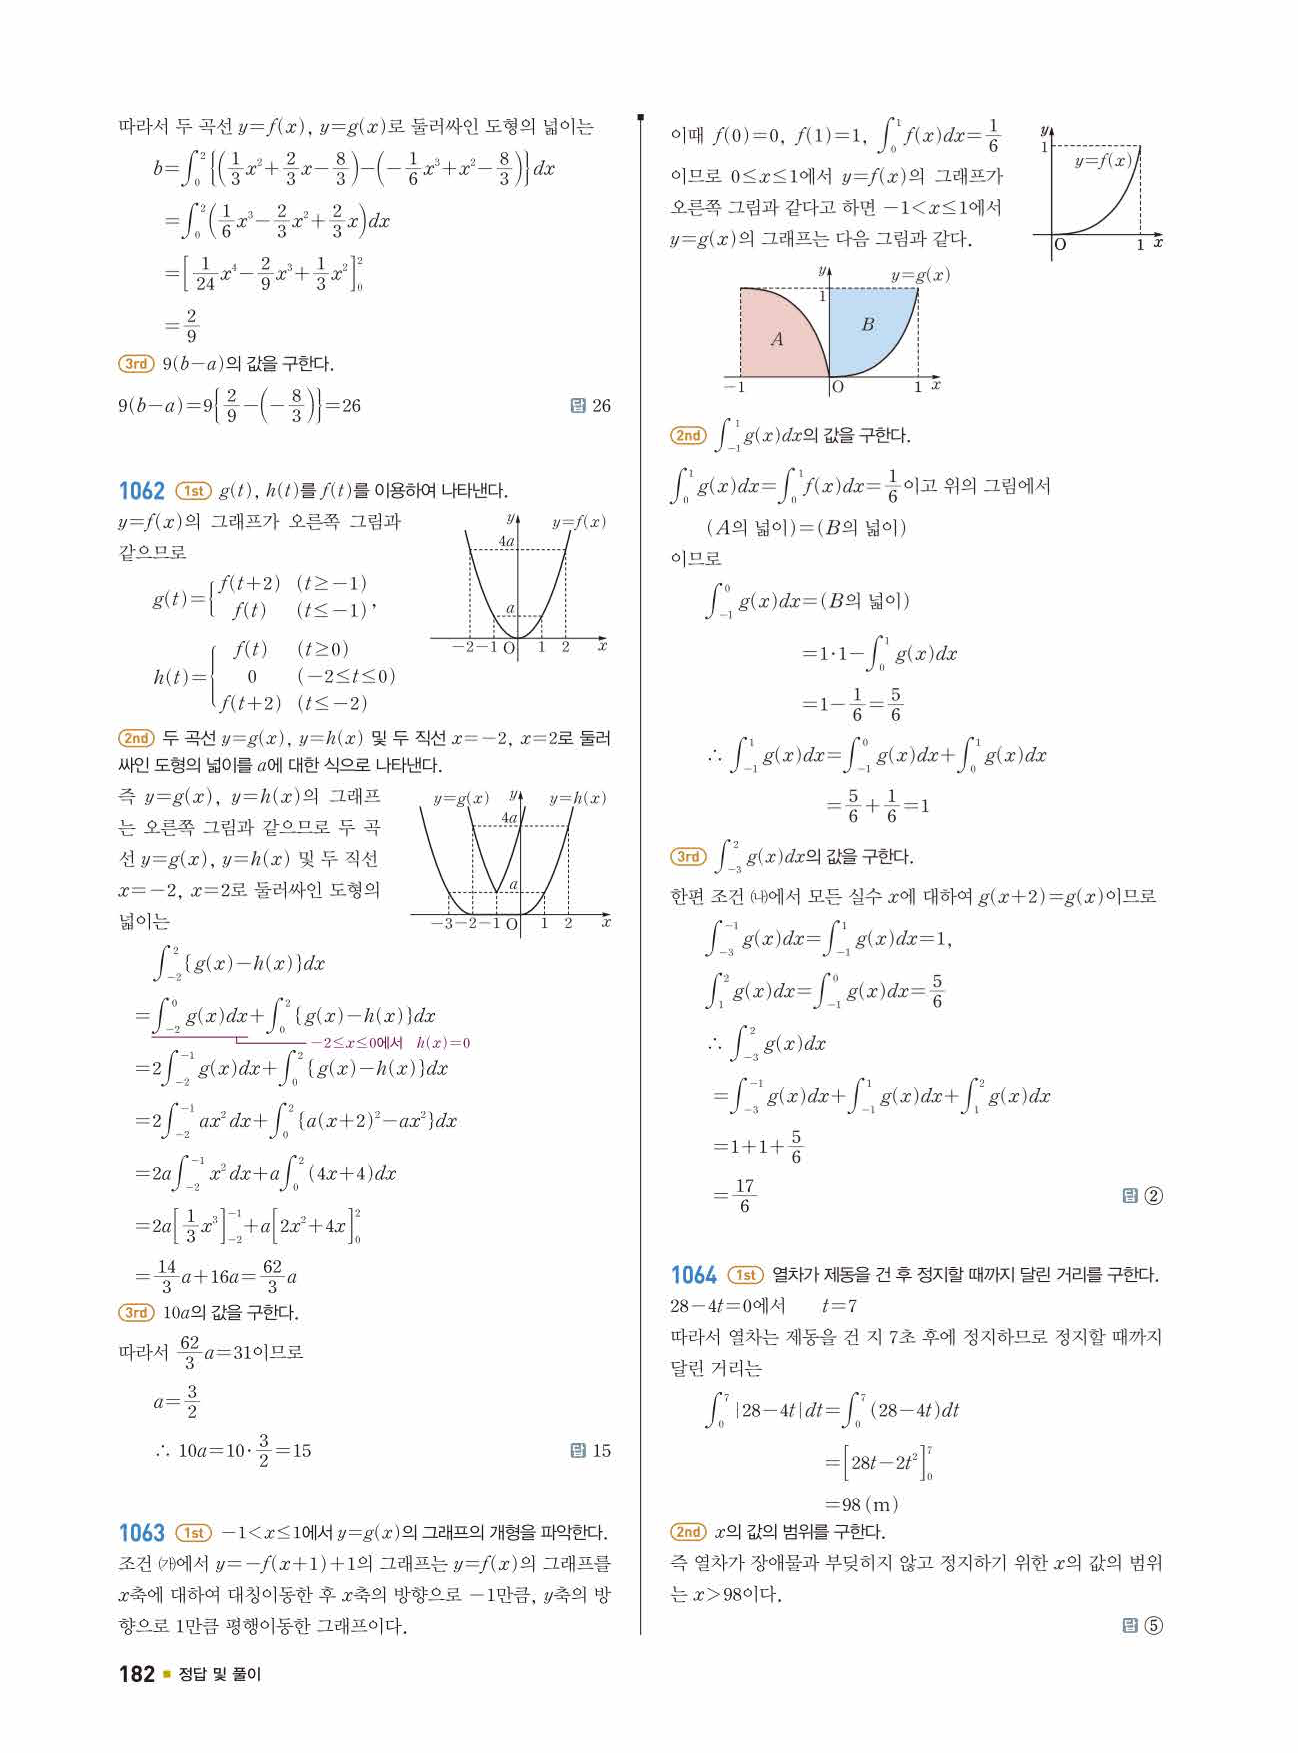 따라서 두 곡선 y=f(x), y=g(x)로 둘러싸인 도형의 넓이는
b=∫₀²{(1/3x²+2/3x-8/3)-(-1/6x³+x²-8/3)}dx
=∫₀²(1/6x³-2/3x²+2/3x)dx
=[1/24x⁴-2/9x³+1/3x²]₀²
=2/9
3rd 9(b-a)의 값을 구한다.
9(b-a)=9{2/9-(-8/3)}=26 답 26
1062 1st g(t), h(t)를 f(t)를 이용하여 나타낸다.
y=f(x)의 그래프가 오른쪽 그림과
같으므로
g(t)={f(t+2) (t≥-1)
f(t) (t≤-1),
h(t)={f(t) (t≥0)
0 (-2≤t≤0)
f(t+2) (t≤-2)
y y=f(x)
4a
a
-2 -1 O 1 2 x
2nd 두 곡선 y=g(x), y=h(x) 및 두 직선 x=-2, x=2로 둘러
싸인 도형의 넓이를 a에 대한 식으로 나타낸다.
즉 y=g(x), y=h(x)의 그래프
는 오른쪽 그림과 같으므로 두 곡
선 y=g(x), y=h(x) 및 두 직선
x=-2, x=2로 둘러싸인 도형의
넓이는
y=g(x) y y=h(x)
4a
a
-3 -2 -1 O 1 2 x
∫₋₂²{g(x)-h(x)}dx
=∫₋₂⁰g(x)dx+∫₀²{g(x)-h(x)}dx
-2≤x≤0에서 h(x)=0
=2∫₋₂⁻¹g(x)dx+∫₀²{g(x)-h(x)}dx
=2∫₋₂⁻¹ax²dx+∫₀²{a(x+2)²-ax²}dx
=2a∫₋₂⁻¹x²dx+a∫₀²(4x+4)dx
=2a[1/3x³]₋₂⁻¹+a[2x²+4x]₀²
=14/3a+16a=62/3a
3rd 10a의 값을 구한다.
따라서 62/3a=31이므로
a=3/2
∴ 10a=10·3/2=15 답 15
1063 1st -1<x≤1에서 y=g(x)의 그래프의 개형을 파악한다.
조건 ㈎에서 y=-f(x+1)+1의 그래프는 y=f(x)의 그래프를
x축에 대하여 대칭이동한 후 x축의 방향으로 -1만큼, y축의 방
향으로 1만큼 평행이동한 그래프이다.
이때 f(0)=0, f(1)=1, ∫₀¹f(x)dx=1/6
이므로 0≤x≤1에서 y=f(x)의 그래프가
오른쪽 그림과 같다고 하면 -1<x≤1에서
y=g(x)의 그래프는 다음 그림과 같다.
y
1
y=f(x)
O 1 x
y y=g(x)
1
A B
-1 O 1 x
2nd ∫₋₁¹g(x)dx의 값을 구한다.
∫₀¹g(x)dx=∫₀¹f(x)dx=1/6이고 위의 그림에서
(A의 넓이)=(B의 넓이)
이므로
∫₋₁⁰g(x)dx=(B의 넓이)
=1·1-∫₀¹g(x)dx
=1-1/6=5/6
∴ ∫₋₁¹g(x)dx=∫₋₁⁰g(x)dx+∫₀¹g(x)dx
=5/6+1/6=1
3rd ∫₋₃²g(x)dx의 값을 구한다.
한편 조건 ㈏에서 모든 실수 x에 대하여 g(x+2)=g(x)이므로
∫₋₃⁻¹g(x)dx=∫₋₁¹g(x)dx=1,
∫₁²g(x)dx=∫₋₁⁰g(x)dx=5/6
∴ ∫₋₃²g(x)dx
=∫₋₃⁻¹g(x)dx+∫₋₁¹g(x)dx+∫₁²g(x)dx
=1+1+5/6
=17/6 답 ②
1064 1st 열차가 제동을 건 후 정지할 때까지 달린 거리를 구한다.
28-4t=0에서 t=7
따라서 열차는 제동을 건 지 7초 후에 정지하므로 정지할 때까지
달린 거리는
∫₀⁷|28-4t|dt=∫₀⁷(28-4t)dt
=[28t-2t²]₀⁷
=98 (m)
2nd x의 값의 범위를 구한다.
즉 열차가 장애물과 부딪히지 않고 정지하기 위한 x의 값의 범위
는 x>98이다.
답 ⑤
182 ■ 정답 및 풀이